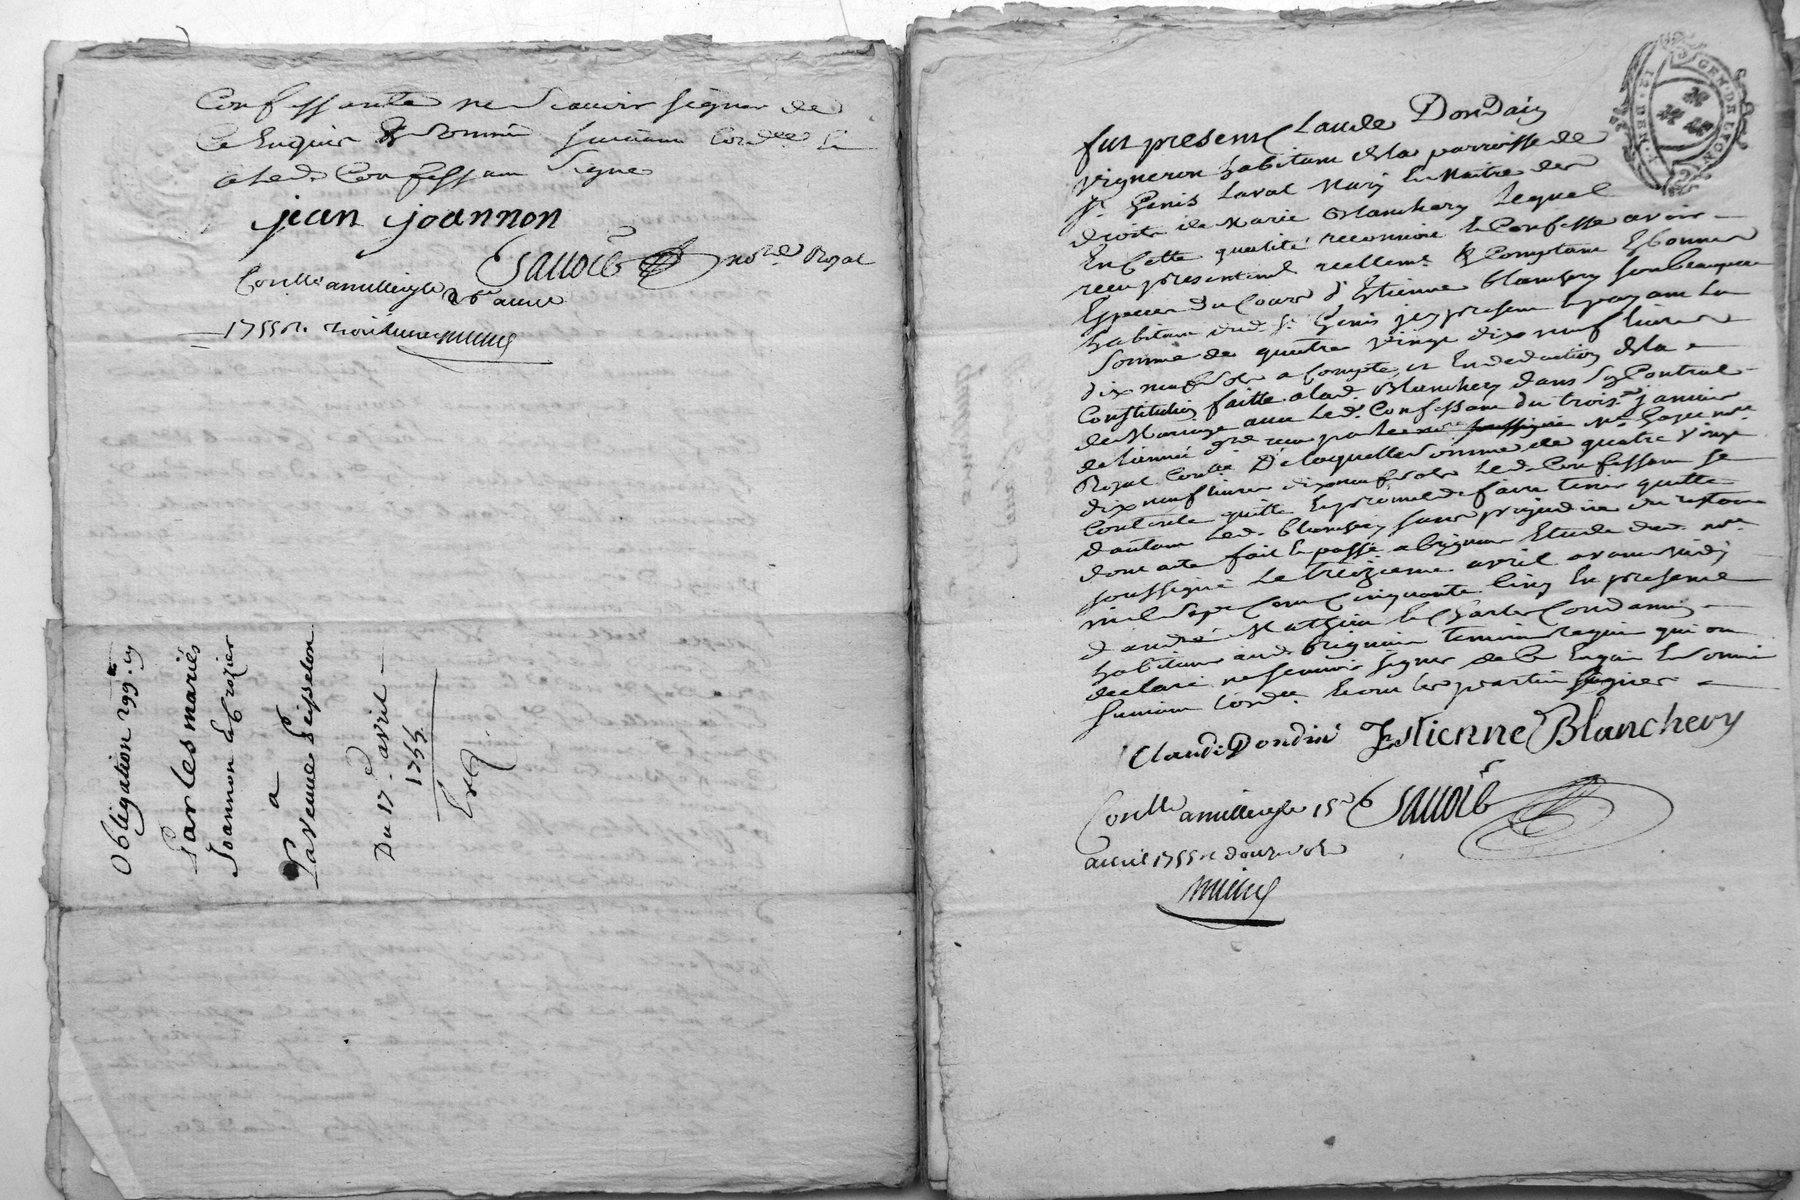 Confessante ne scavoir signer de
ce Enquis & sommé suivant l'ord.ce et
a led. Confessant signé
jean joannon
Sauoie no.re Royal
Con.lle a millerysle 26e avril
1755 R.
Obligation 299.# 19
Par les mariés
Joannon & Crozier
a
La veuve
Du 17.e avril
1755.
Exp.é
GEN. DE LYON
fut present Claude Dondain
vigneron habitant de la parroisse de
St. Genis Laval Mary & Maitre des
droits de Marie Blanchery Lequel
En Cette qualité reconnoit & Confesse avoir
reçu presentemt. reellemt. & Comptant Es bonnes
Especes du Cours d'Estienne Blanchery son beaupere
habitant dud. St. Genis icy present & payant la
somme de quatre vingt dix neuf livres
dix neuf sols a compte et En deduction de la
Constitution faitte a lad. Blanchery dans son Contrat
de Mariage avec led. Confessant du trois.e janvier
de l'année reçu par
Royal Con.lé De laquelle somme de quatre vingt
dix neuf livres dix neuf sols led. Confessant se
contente quitte & promet de faire tenir quitte
d'autant led. Blanchery sans prejudice du restant
dont acte fait & passé a brignais Etude dud. no.re
soussigné Le treizieme avril avant midy
mil sept Cent Cinquante Cinq En presence
d'andré Mathieu & Charles Condamin
habitans aud. brignais temoins requis qui ont
declaré ne scavoir signer de Ce Enquis & sommés
suivant l'ord.ce & ont les parties signé
Claude Dondin Estienne Blanchery
Con.lle a millerysle 15e Sauoie
avril 1755 R douze sols